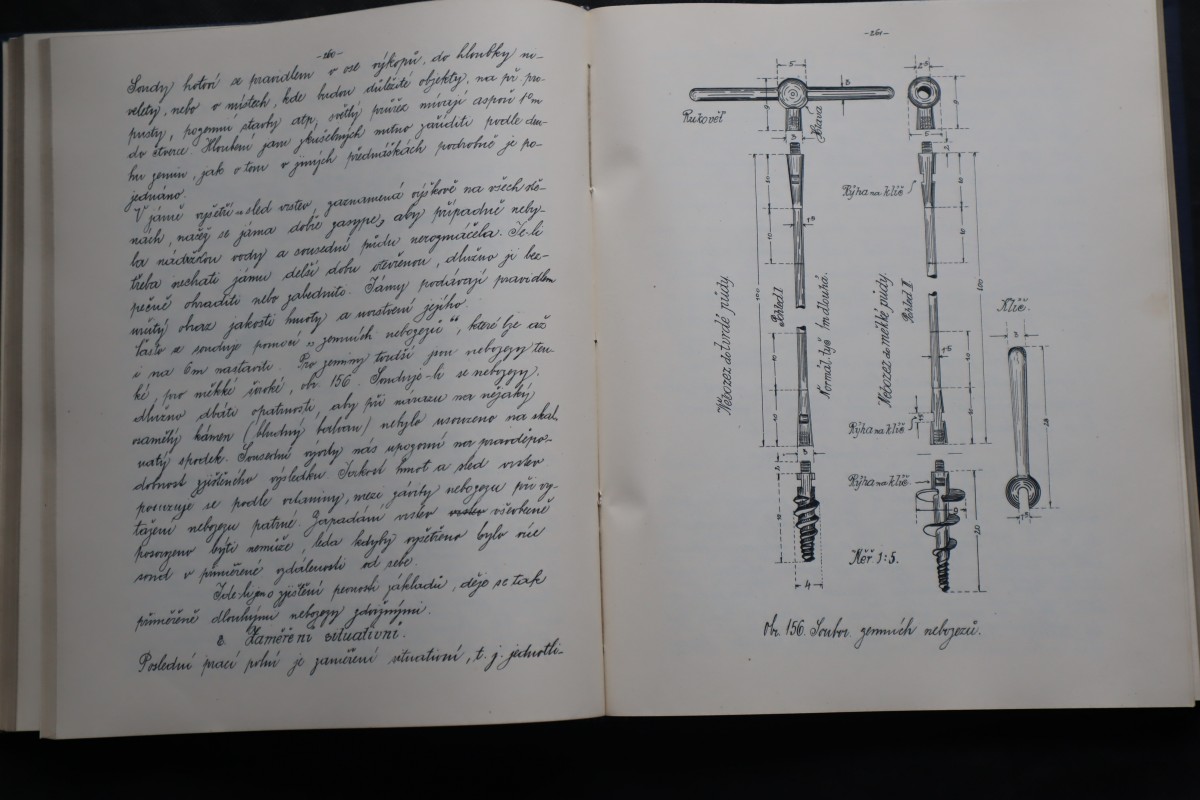 -260-
Sondy hotoví se pravidlem v ose výkopů, do hloubky ni-
velety, nebo v místech, kde budou důležité objekty, na př. pro-
pusty, pozemní stavby atp., světlý průřez mívají aspoň 1 m
do čtverce. Hloubení jam zkušebných nutno zaříditi podle dru-
hu zemin, jak o tom v jiných přednáškách podrobně je po-
jednáno.
V jámě vyšetří se sled vrstev, zaznamená výškově na všech stě-
nách, načež se jáma dobře zasype, aby případně neby-
la nádržkou vody a sousední půdu nerozmáčela. Je-li
třeba nechati jámu delší dobu otevřenou, dlužno ji bez-
pečně ohraditi nebo zabedniti. Jámy podávají pravidlem
určitý obraz jakosti hmoty a uvrstvení jejího.
Často se sonduje pomocí „zemních nebozezů“, které lze až
i na 6m nastaviti. Pro zeminy tvrdší jsou nebozezy ten-
ké, pro měkké široké, obr. 156. Sonduje-li se nebozezy,
dlužno dbáti opatrnosti, aby při nárazu na nějaký
osamělý kámen (bludný balvan) nebylo usouzeno na skal-
natý spodek. Sousední vývrty nás upozorní na pravděpo-
dobnost zjištěného výsledku. Jakost hmot a sled vrstev
posuzuje se podle ortaniny, mezi závity nebozezu při vy-
tažení nebozezu patrné. Zapadání vrstev všeobecně
posouzeno býti nemůže, leda kdyby vyšetřeno bylo více
sond v přiměřené vzdálenosti od sebe.
Jde-li jen o zjištění pevnosti základů, děje se tak
přiměřeně dlouhými nebozezy zdvižnými.
Zaměření situativní.
Poslední prací polní je zaměření situativní, t. j. jednotli-
-261-
5
8
Rukověť
Hlava
9
3
2⁵
9
5
Rýha na klíč
Nebozez do tvrdé půdy
Pohled I
Normál. tyč 1m dlouhá.
Nebozez do měkké půdy.
Pohled II
100
10
10
1⁵
10
10
100
10
10
1⁵
10
10
Rýha na klíč
3
Rýha na klíč
20
4
Měř. 1:5.
Klíč.
3
28
1⁵
obr. 156. Soubor zemních nebozezů.